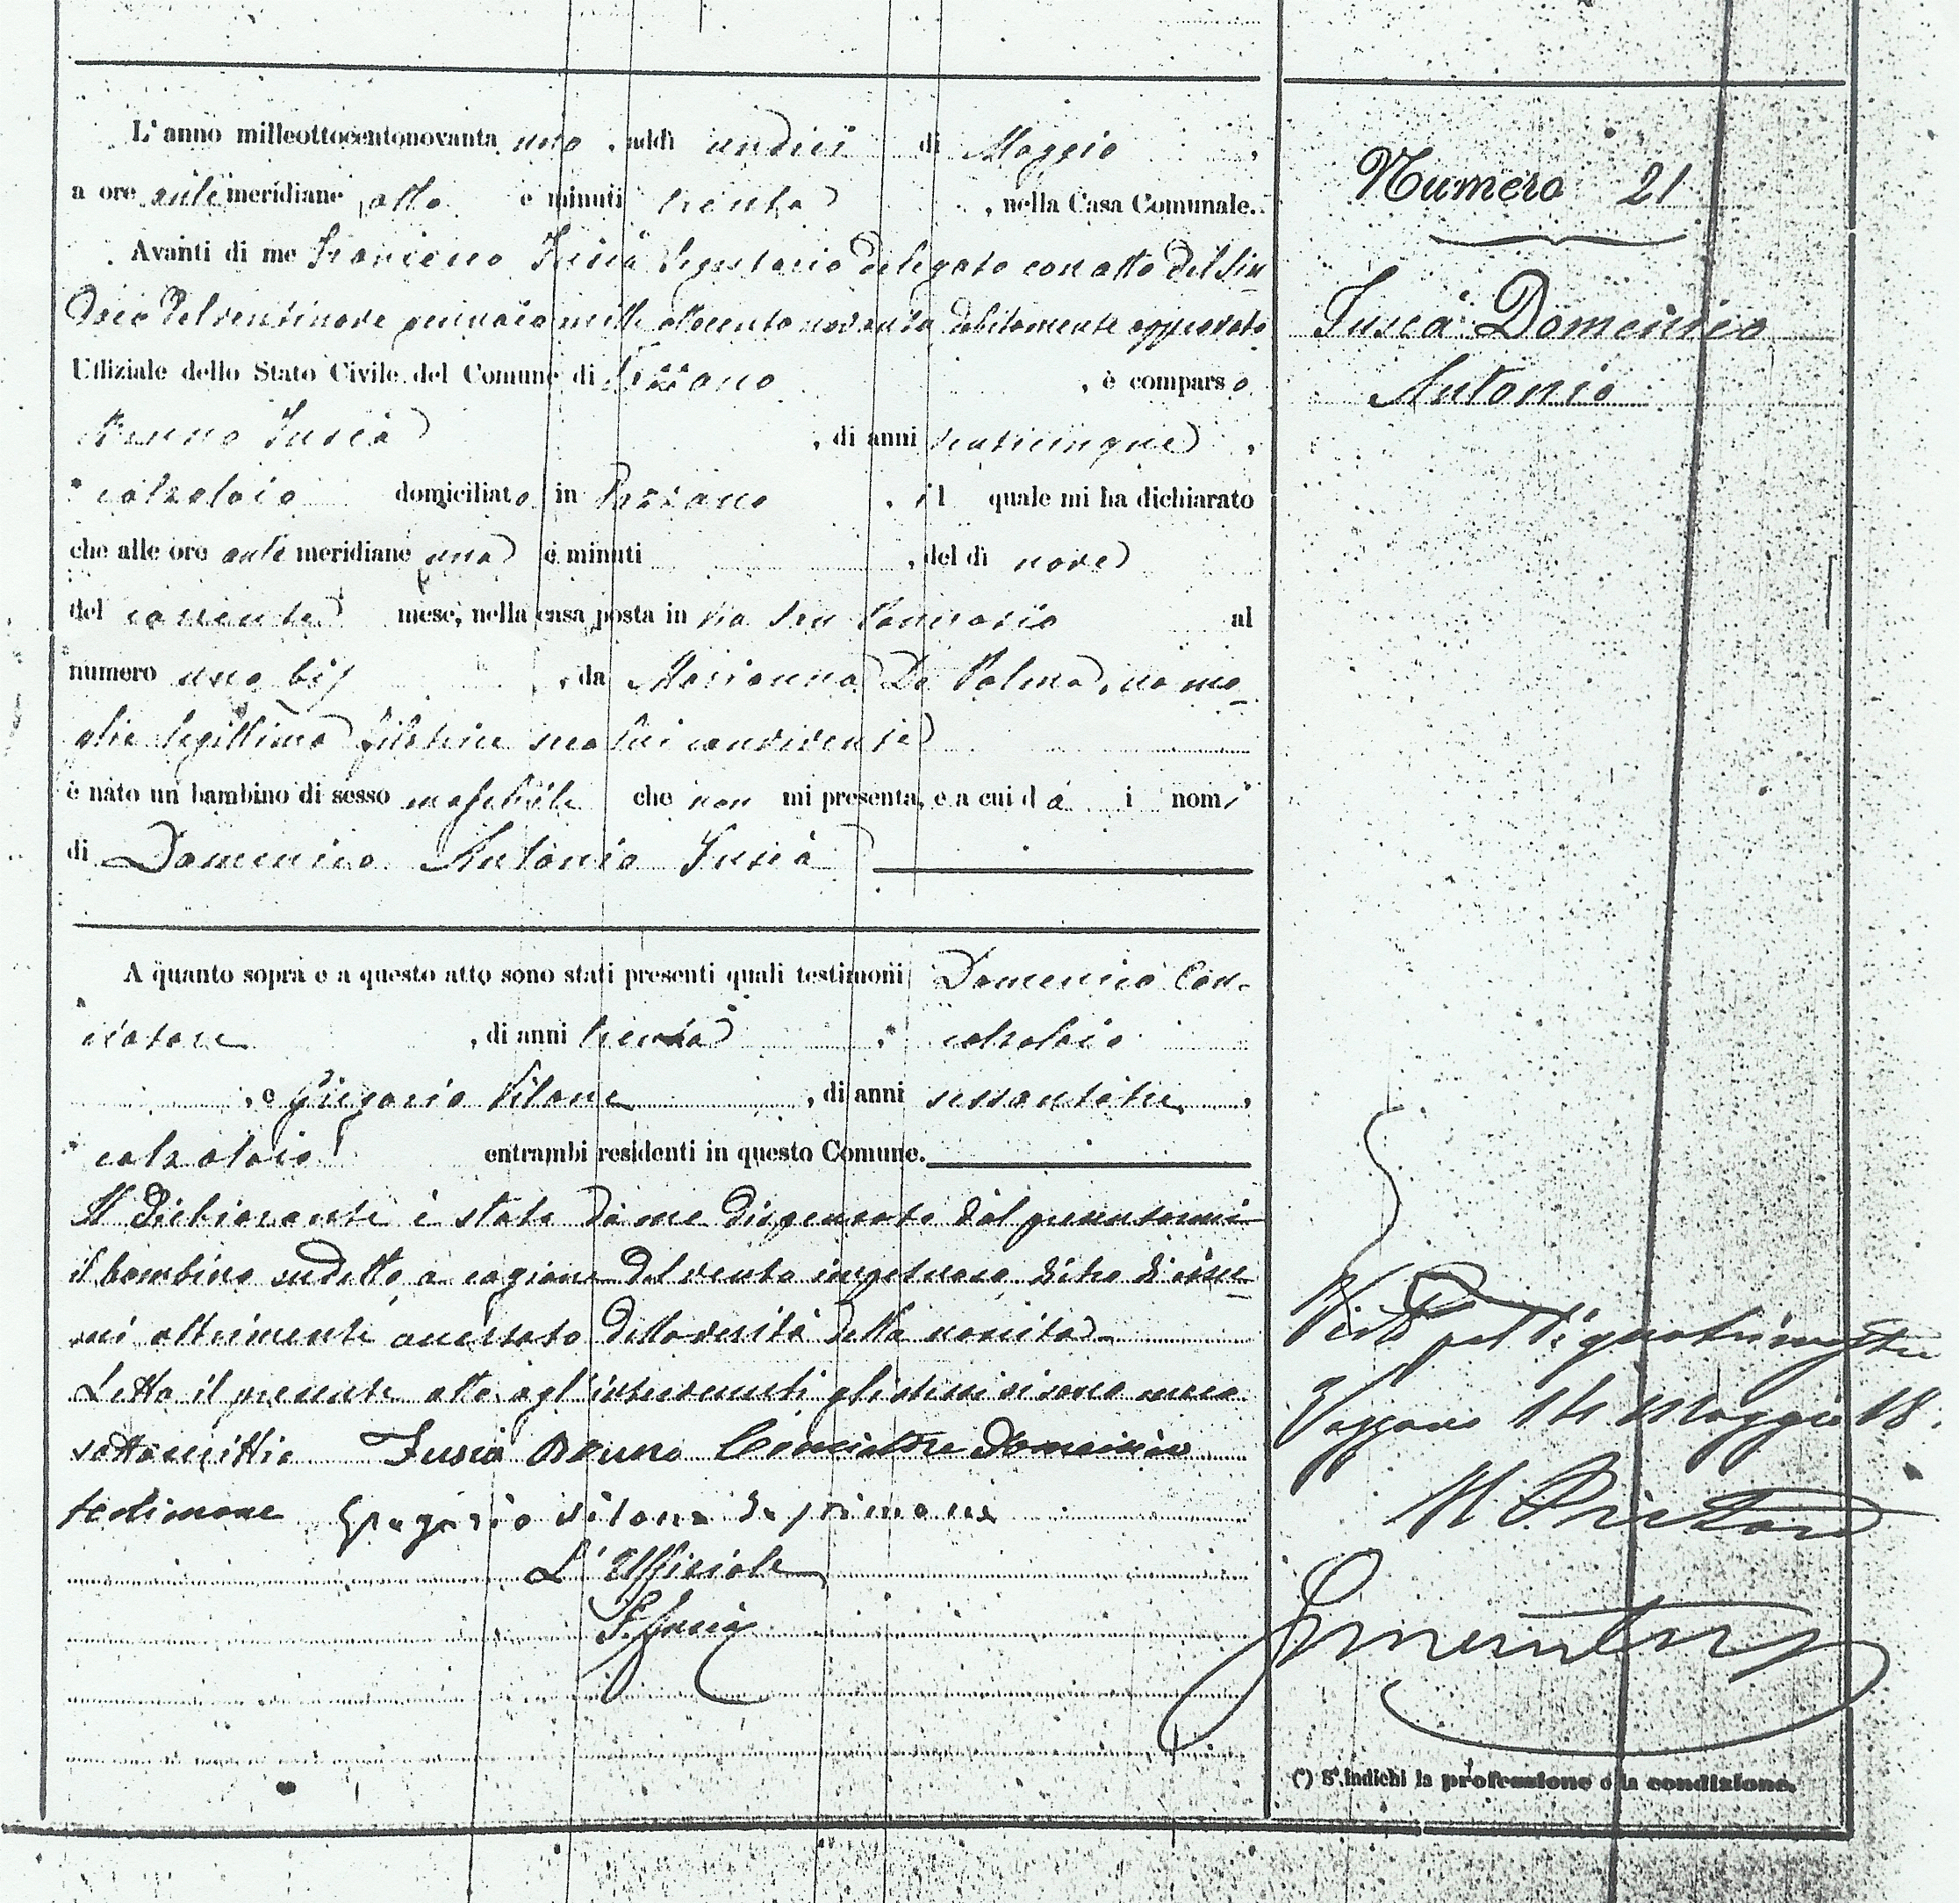 L'anno milleottocentonovanta uno, addì undici di Maggio,
a ore antemeridiane otto e minuti trenta, nella Casa Comunale.
Avanti di me Francesco Fuscà Segretario delegato con atto del Sin-
daco del ventinove gennaio mille ottocento novanta debitamente approvato
Uffiziale dello Stato Civile del Comune di Pizzano, è comparso
Bruno Fuscà, di anni,
calzolaio domiciliato in, il quale mi ha dichiarato
che alle ore antemeridiane una e minuti, del dì nove
del corrente mese, nella casa posta in via San al
numero uno bis, da Marianna De Palma, sua mo-
glie legittima filatrice seco lui convivente
è nato un bambino di sesso maschile che non mi presenta, e a cui dà i nomi
di Domenico Antonio Fuscà
A quanto sopra e a questo atto sono stati presenti quali testimoni Domenico Con-
, di anni trenta, calzolaio
, e Gregorio Vilone, di anni sessantatre,
calzolaio entrambi residenti in questo Comune.
Il dichiarante è stato da me dispensato dal presentarmi
il bambino sudetto a cagione del vento impetuoso, dietro d'esser-
mi altrimenti accertato della verità della nascita.
Letto il presente atto agl'intervenuti gli stessi si sono meco
sottoscritti. Fuscà Bruno Domenico
testimone Gregorio Vilone
L'Uffiziale
F. Fuscà
Numero 21
Fuscà Domenico
Antonio
Visto pel 1° quatrimestre
14 Maggio 18
Il Pretore
(*) Si indichi la professione o la condizione.